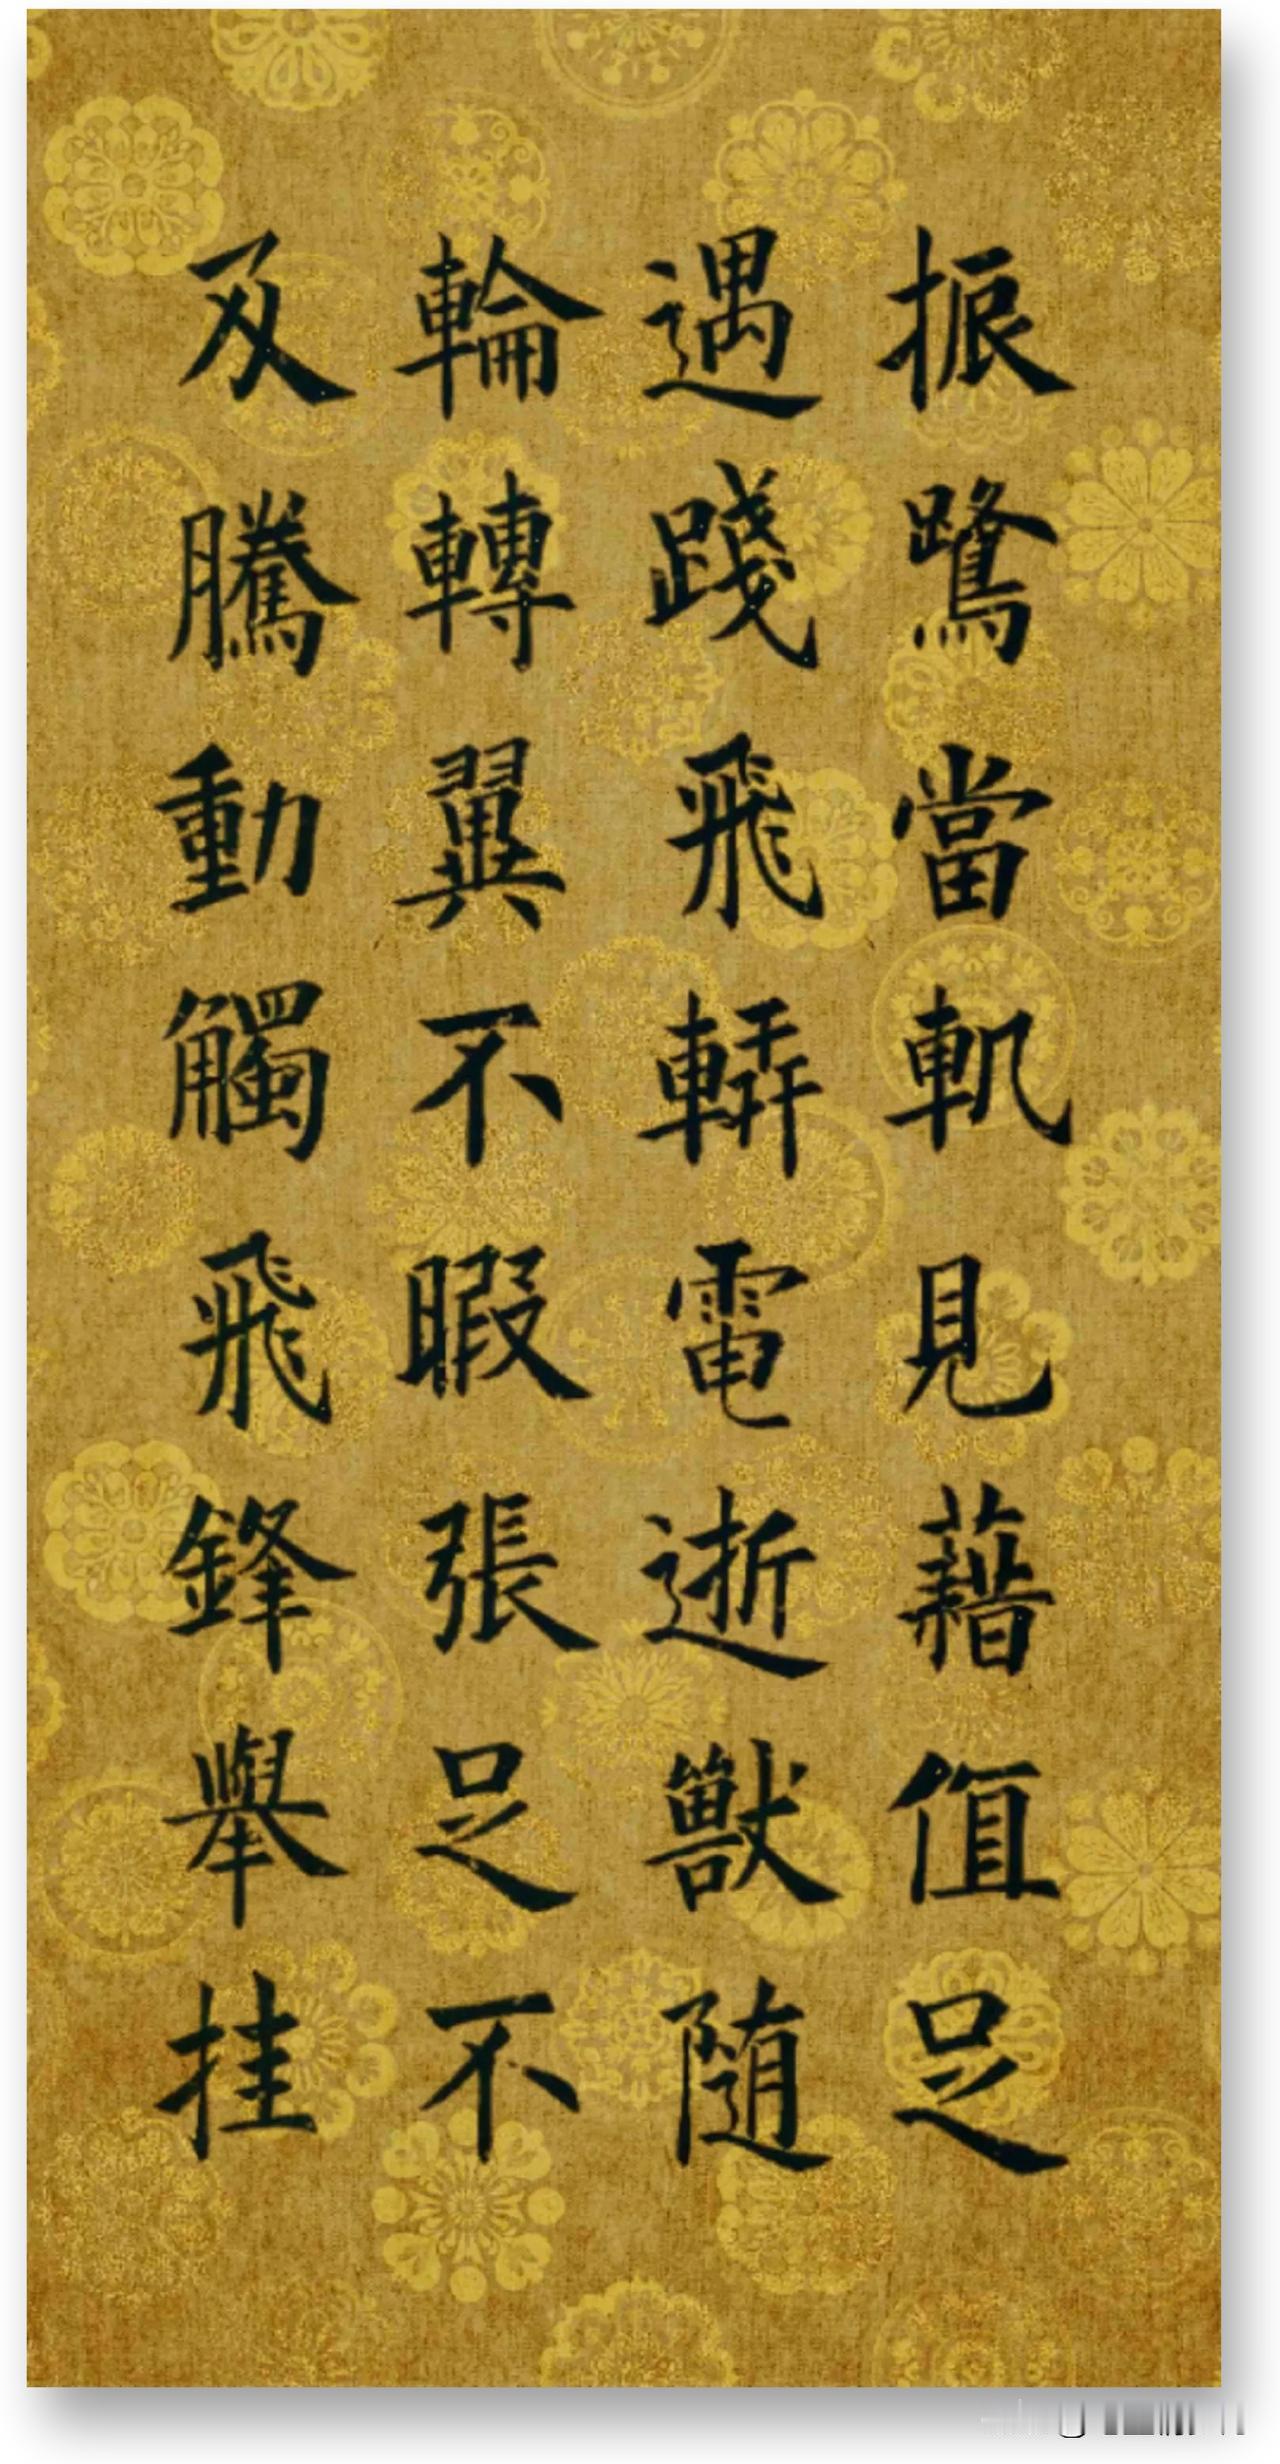 振鷺當軌見藉值足
遇踐飛輧電逝獸随
輪轉翼不暇張足不
及騰動觸飛鋒舉挂